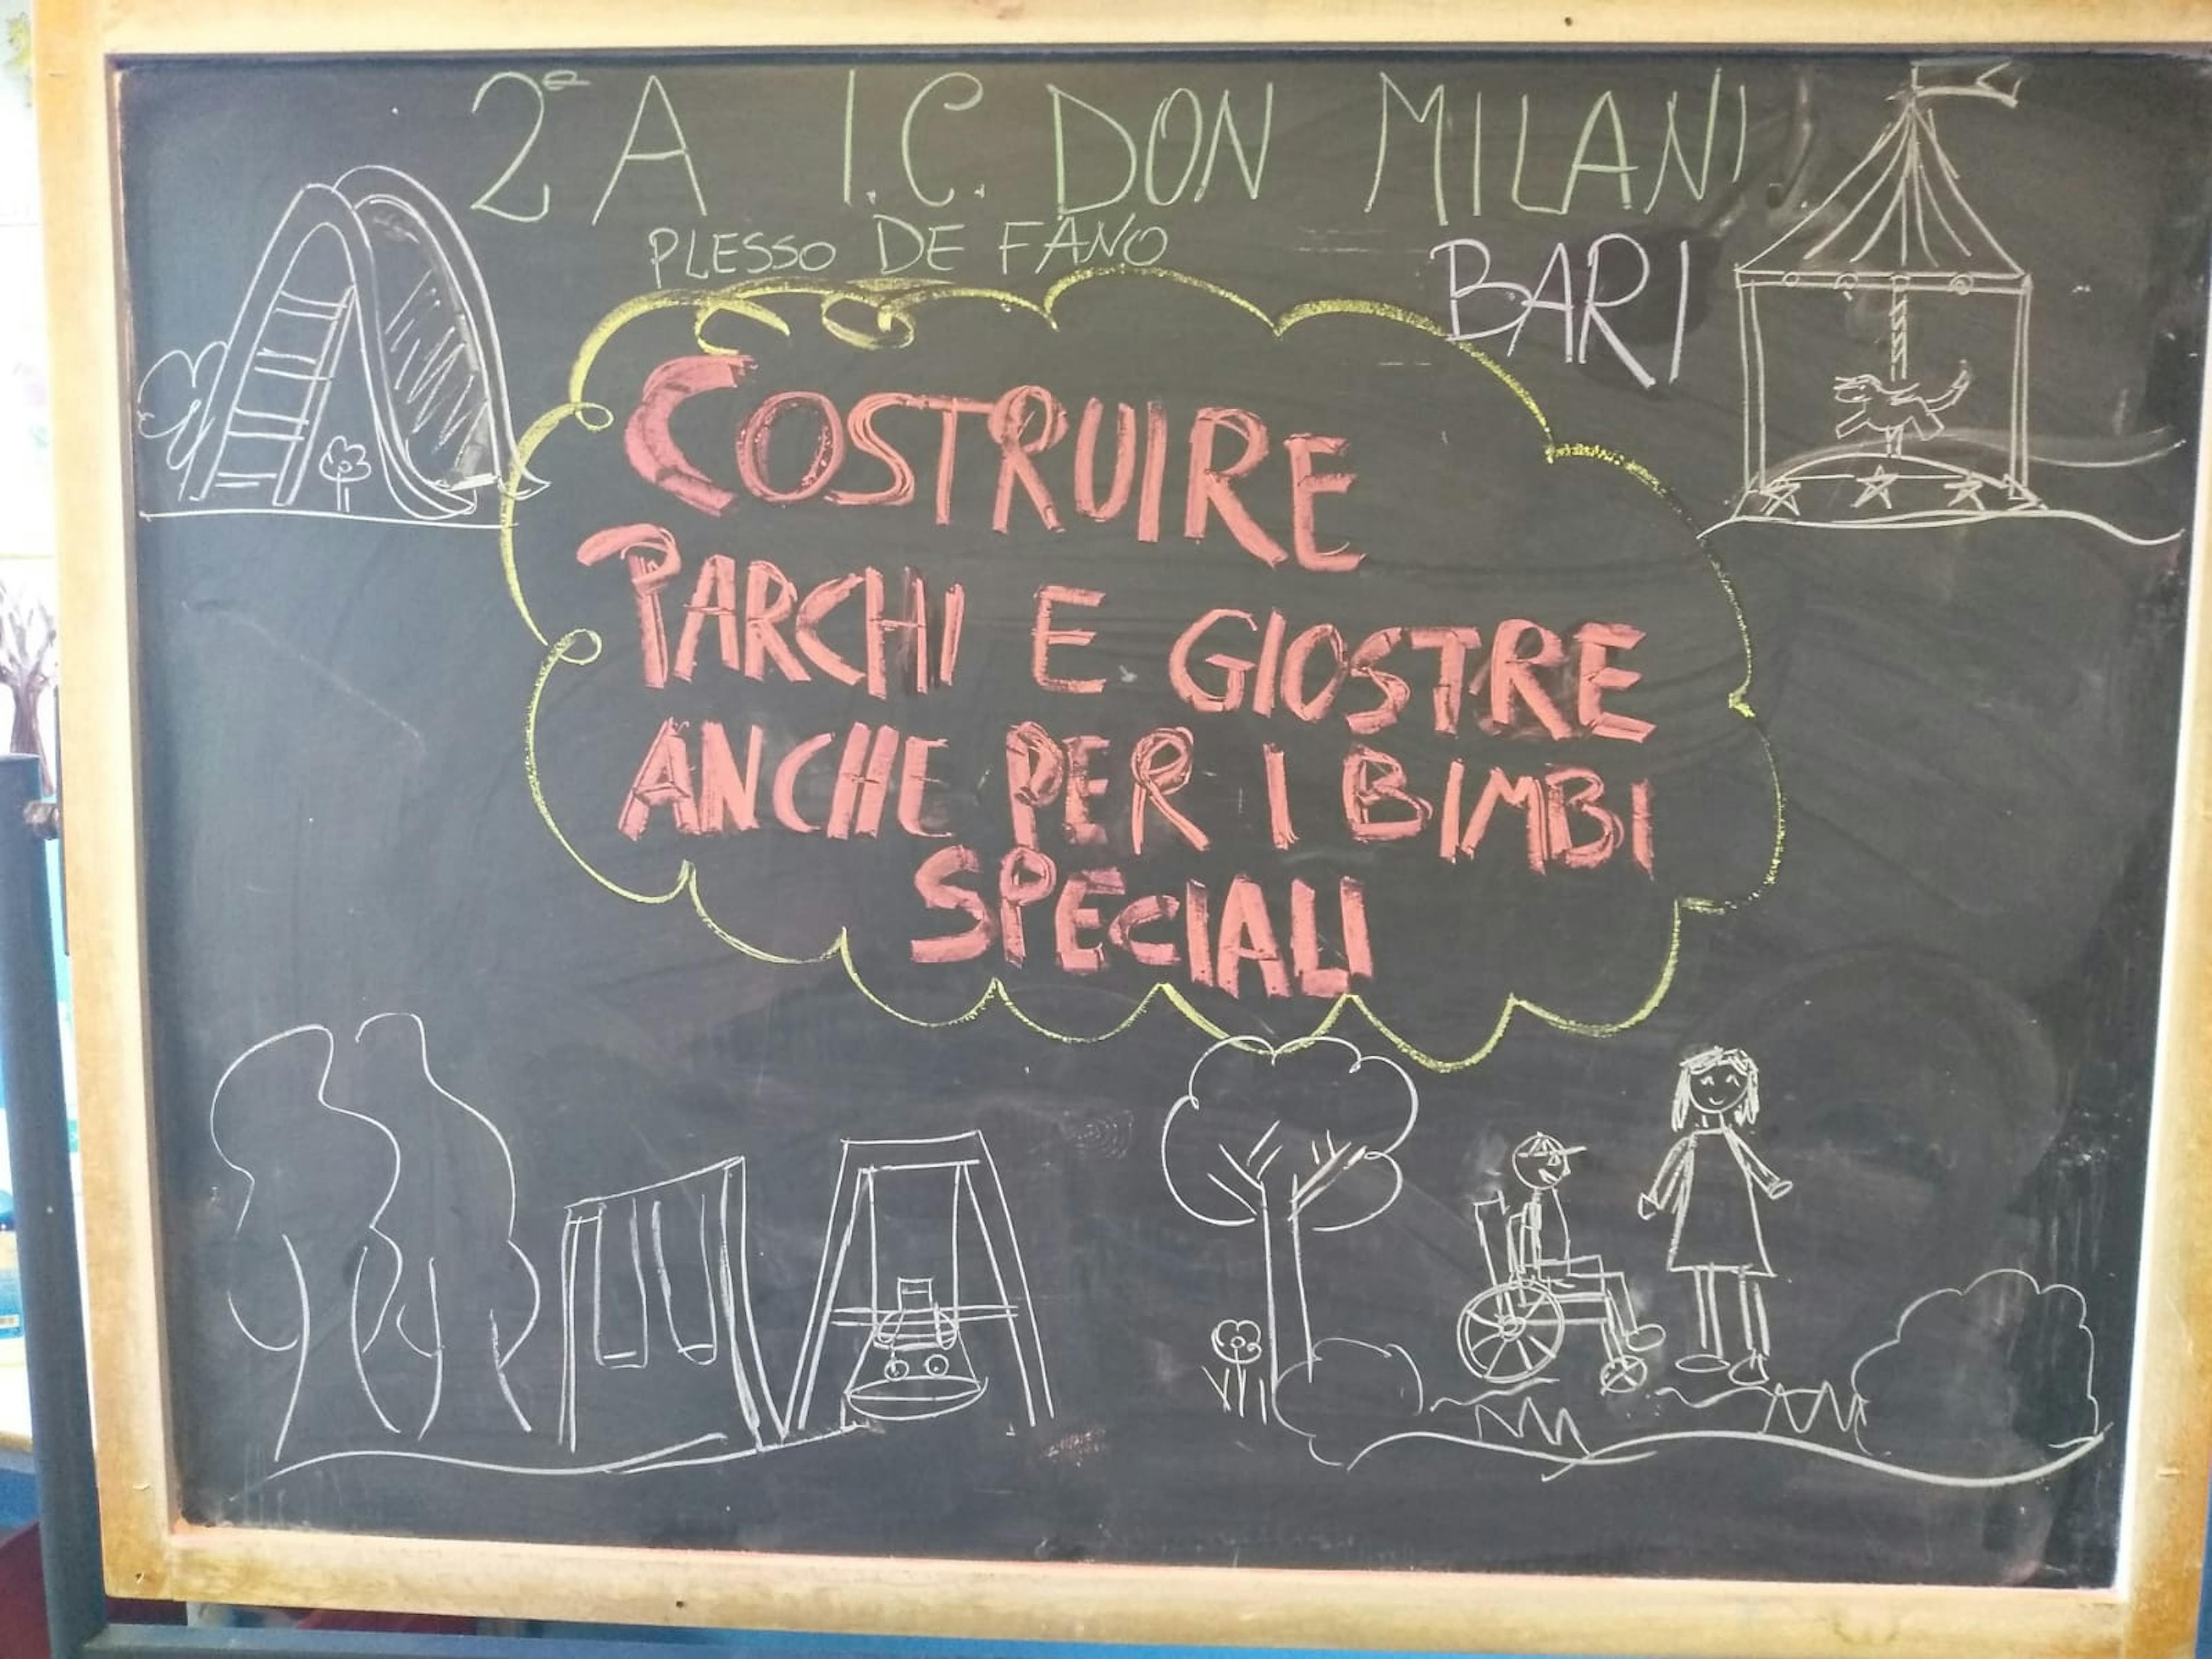 2ª A I.C. DON MILANI
PLESSO DE FANO
BARI
COSTRUIRE
PARCHI E GIOSTRE
ANCHE PER I BIMBI
SPECIALI